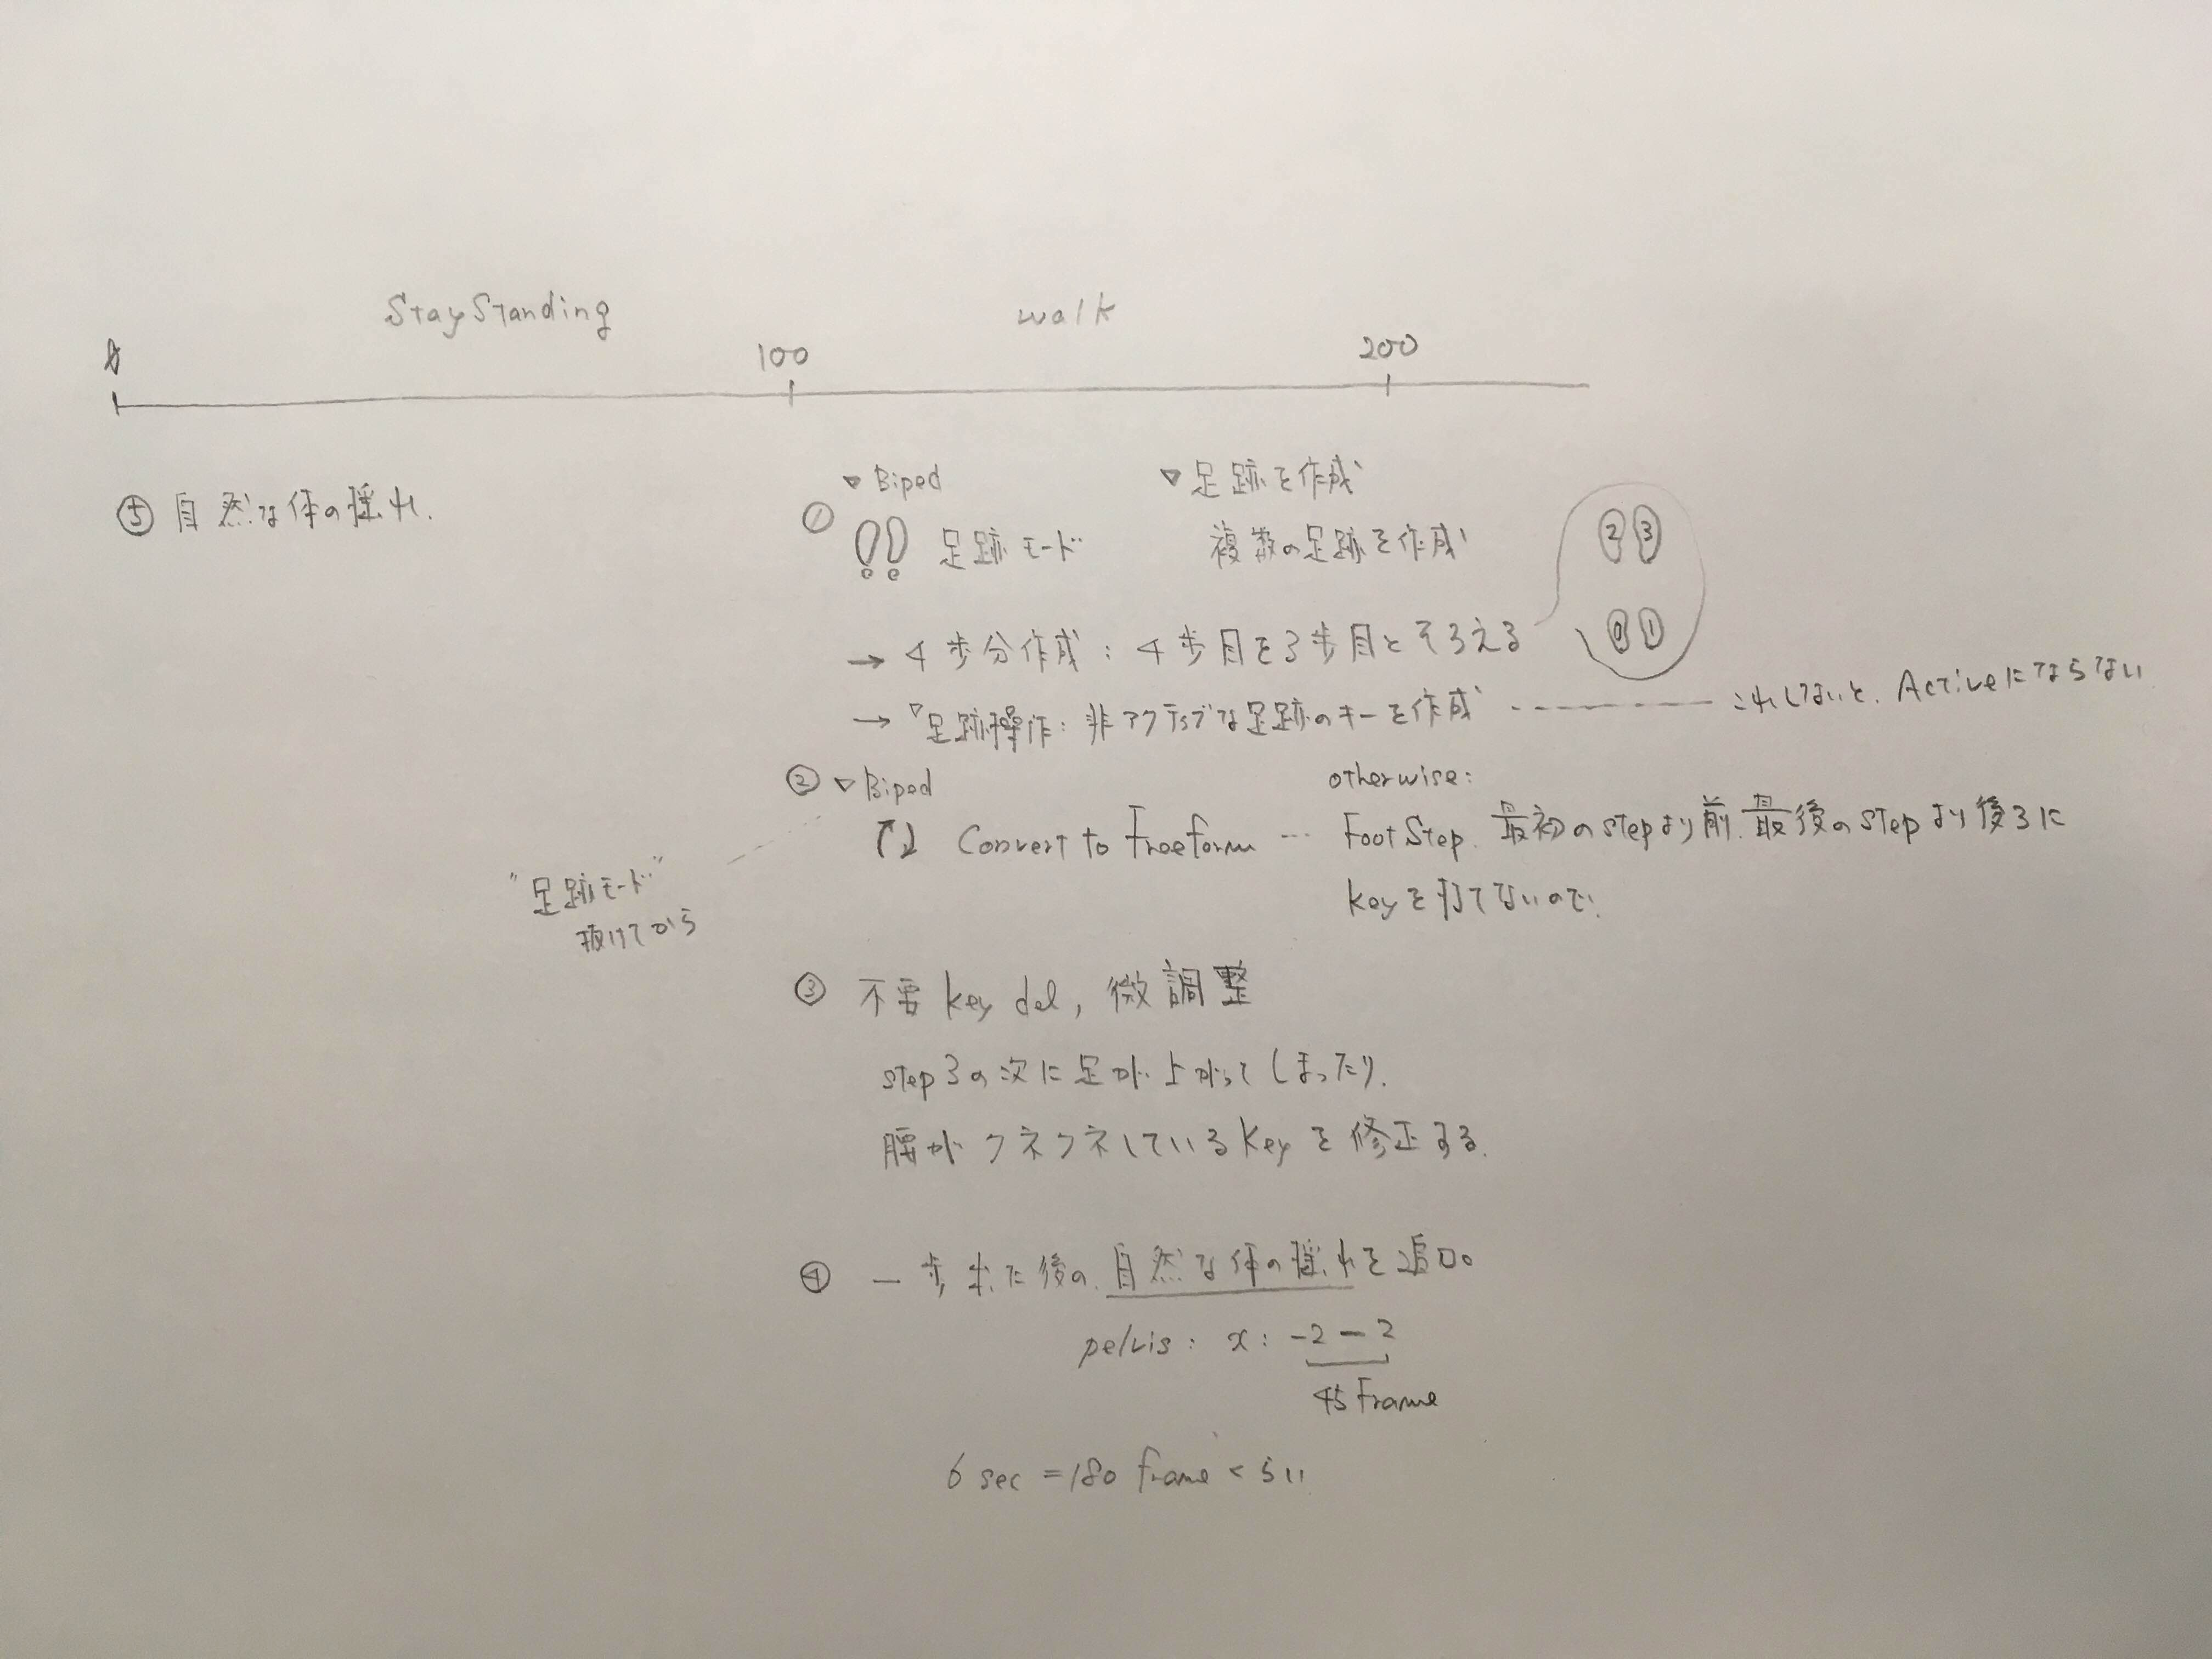 StayStanding
walk
0
100
200
⑤ 自然な体の揺れ.
▽ Biped
▽ 足跡を作成
①
足跡モード
複数の足跡を作成
2 3
0 1
→ 4歩分作成: 4歩目を3歩目とそろえる
→ ▽足跡操作: 非アクティブな足跡のキーを作成 ---- これしないと、Activeにならない
② ▽ Biped
otherwise:
Convert to Freeform ... FootStep. 最初のstepより前、最後のstepより後ろに
keyを打てないので.
"足跡モード"
抜けてから
③ 不要 key del, 微調整
step3の次に足が上がってしまったり.
腰がクネクネしているkeyを修正する.
④ 一歩出た後の、自然な体の揺れを追加。
pelvis: x: -2 – 2
45 Frame
6 sec = 180 frame くらい